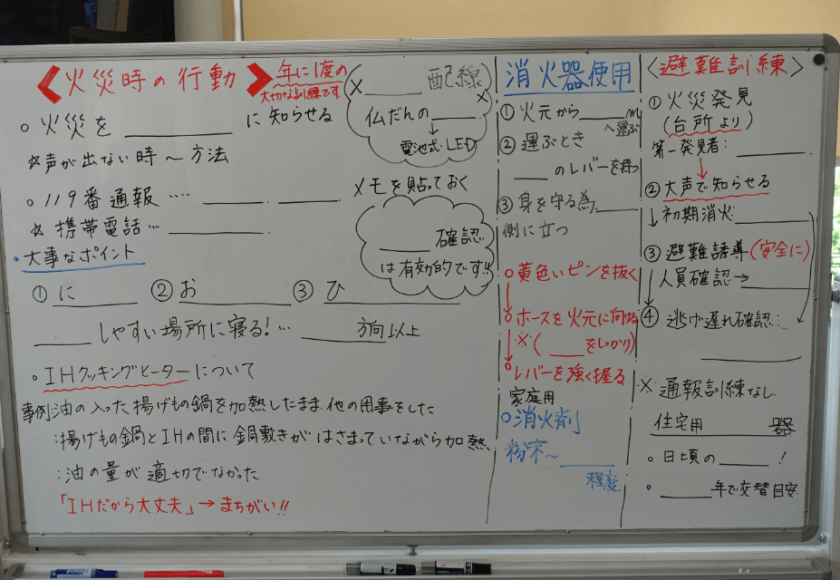 <火災時の行動>
年に1度の
大切な訓練です
。火災を________に知らせる
☆声が出ない時～方法
。119番通報…. ____ ____ メモを貼っておく
☆携帯電話… ________
・大事なポイント
①に______ ②お______ ③ひ______
____しやすい場所に寝る!… ______方向以上
。IHクッキングヒーターについて
事例油の入った揚げもの鍋を加熱したまま他の用事をした
:揚げもの鍋とIHの間に鍋敷きがはさまっていながら加熱
:油の量が適切でなかった
「IHだから大丈夫」→まちがい!!
×____配線
仏だんの____×
↓
電池式・LED
____確認
は有効的です!!
消火器使用
①火元から____m
へ運ぶ
②運ぶとき
____のレバーを持つ
③身を守る為、____
側に立つ
○黄色いピンを抜く
↓
○ホースを火元に向ける
※(____をしっかり)
↓
○レバーを強く握る
家庭用
○消火剤
粉末～____
程度
<避難訓練>
①火災発見
(台所より)
第一発見者:______
②大声で知らせる
↓初期消火:______
③避難誘導(安全に)
人員確認→______
④逃げ遅れ確認:
________
※通報訓練なし
住宅用____器
。日頃の______!
。____年で交替目安